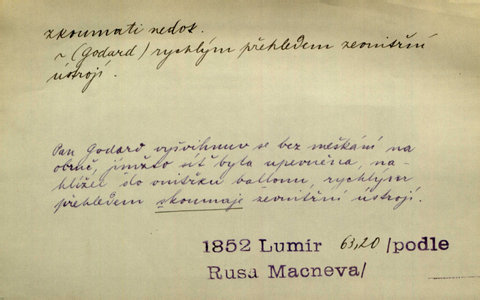 zkoumati nedok.
~ (Godard) rychlým přehledem zevnitřní
ústrojí.
Pan Godard vyšvihnuv se bez meškání na
obruč, jímžto síť byla upevněna, na-
hlížel do vnitřku ballonu, rychlým
přehledem zkoumaje zevnitřní ústrojí.
1852 Lumír 63,20 /podle
Rusa Macneva/